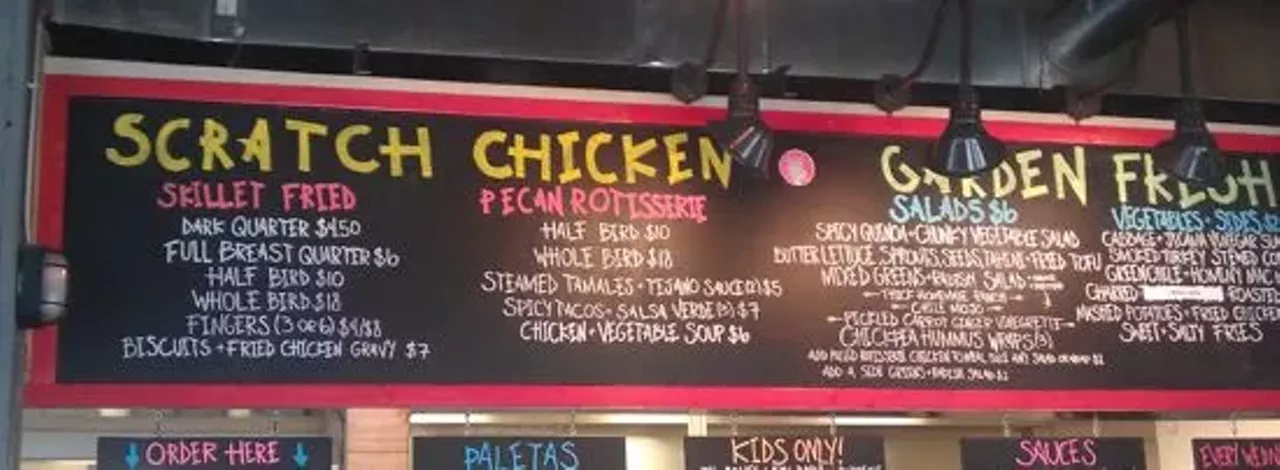 SCRATCH CHICKEN
SKILLET FRIED
DARK QUARTER $4.50
FULL BREAST QUARTER $6
HALF BIRD $10
WHOLE BIRD $18
FINGERS (3 OR 6) $4/$8
BISCUITS + FRIED CHICKEN GRAVY $7
PECAN ROTISSERIE
HALF BIRD $10
WHOLE BIRD $18
STEAMED TAMALES + TEJANO SAUCE (2) $5
SPICY TACOS + SALSA VERDE (3) $7
CHICKEN + VEGETABLE SOUP $6
GARDEN FRESH
SALADS $6
SPICY QUINOA + CHUNKY VEGETABLE SALAD
BUTTER LETTUCE, SPROUTS, SEEDS, TAHINI + FRIED TOFU
MIXED GREENS + RADISH SALAD
THICK HOMEMADE RANCH
CHILE MOJO
PICKLED CARROT GINGER VINEGRETTE
CHICKPEA HUMMUS WRAPS (3)
ADD A SIDE GREENS + RADISH SALAD $2
VEGETABLES + SIDES
CABBAGE + JICAMA VINEGAR
SMOKED TURKEY STEWED
GREEN CHILE + HOMINY MAC
CHARRED ROASTED
MASHED POTATOES + FRIED CHICKEN
SWEET + SALTY FRIES
ORDER HERE
PALETAS
KIDS ONLY!
SAUCES
EVERY